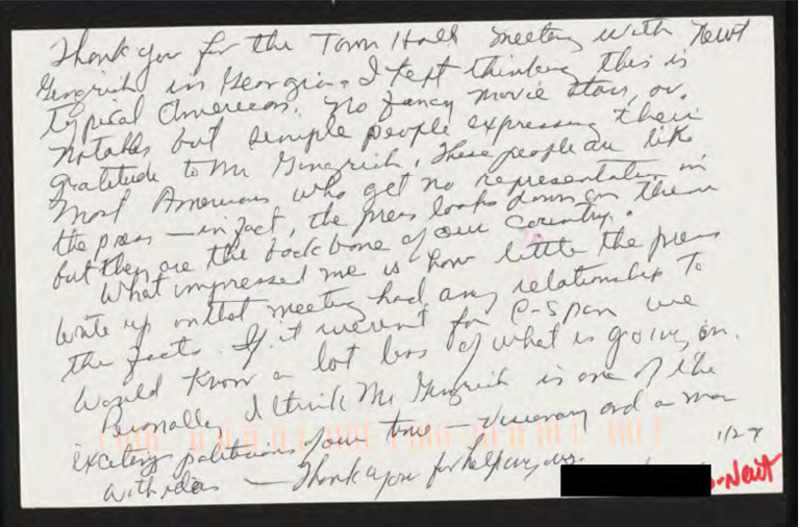 Thank you for the Town Hall meeting with Newt
Gingrich in Georgia. I kept thinking this is
typical American. No fancy movie stars, or
notables but simple people expressing their
gratitude to Mr Gingrich. These people are like
most Americans who get no representation in
the press — in fact, the press looks down on them
but they are the backbone of our country.
What impressed me is how little the press
write up on that meeting had any relationship to
the facts. If it weren't for C-Span we
would know a lot less of what is going on.
Personally I think Mr Gingrich is one of the
exciting politicians of our time — visionary and a man
with ideas — Thank you for helping us.
1/27
-Newt